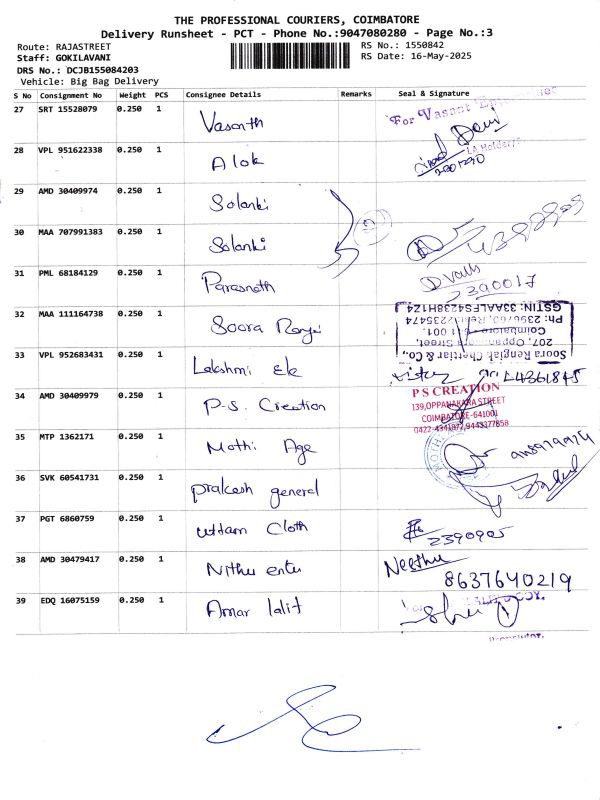 THE PROFESSIONAL COURIERS, COIMBATORE
Delivery Runsheet - PCT - Phone No.:9047080280 - Page No.:3
Route: RAJASTREET
RS No.: 1550842
Staff: GOKILAVANI
RS Date: 16-May-2025
DRS No.: DCJB155084203
Vehicle: Big Bag Delivery
S No Consignment No Weight PCS Consignee Details Remarks Seal & Signature
27 SRT 15528079 0.250 1 Vasanth
For Vasant
28 VPL 951622338 0.250 1 Alok
29 AMD 30409974 0.250 1 Solanki
30 MAA 707991383 0.250 1 Solanki
31 PML 68184129 0.250 1 Parasnath
2390017
32 MAA 111164738 0.250 1 Soora Rangi
Soora Rengiah Chettiar & Co.,
207, Oppanakara Street,
Coimbatore - 641 001.
GSTIN: 33AALFS4238H1Z4
33 VPL 952683431 0.250 1 Lakshmi Ele
34 AMD 30409979 0.250 1 P.S. Creation
P S CREATION
139,OPPANAKARA STREET
COIMBATORE-641001
35 MTP 1362171 0.250 1 Mothi Age
36 SVK 60541731 0.250 1 prakash general
37 PGT 6860759 0.250 1 uttam Cloth
2390905
38 AMD 30479417 0.250 1 Nithu enter
Neethu
8637640219
39 EDQ 16075159 0.250 1 Amar lalit